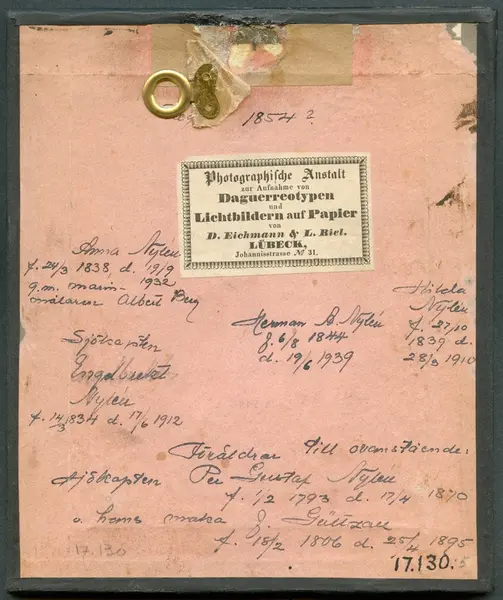 1854?
Photographische Anstalt
zur Aufnahme von
Daguerreotypen
und
Lichtbildern auf Papier
von
D. Eichmann & L. Biel.
LÜBECK,
Johannisstrasse № 31.
Anna Nylén
f. 24/3 1838 d. 19/9
1932
g.m. marin-
målaren Albert Berg
Sjökapten
Engelbrekt
Nylén
f. 14/3 1834 d. 17/6 1912
Herman A. Nylén
f. 6/8 1844
d. 19/6 1939
Hilda
Nylén
f. 27/10
1839 d.
28/3 1910
Föräldrar till ovanstående:
sjökapten Per Gustaf Nylén
f. 1/2 1793 d. 17/4 1870
o. hans maka J. Göltzau
f. 18/2 1806 d. 25/4 1895
17.130
17.130.